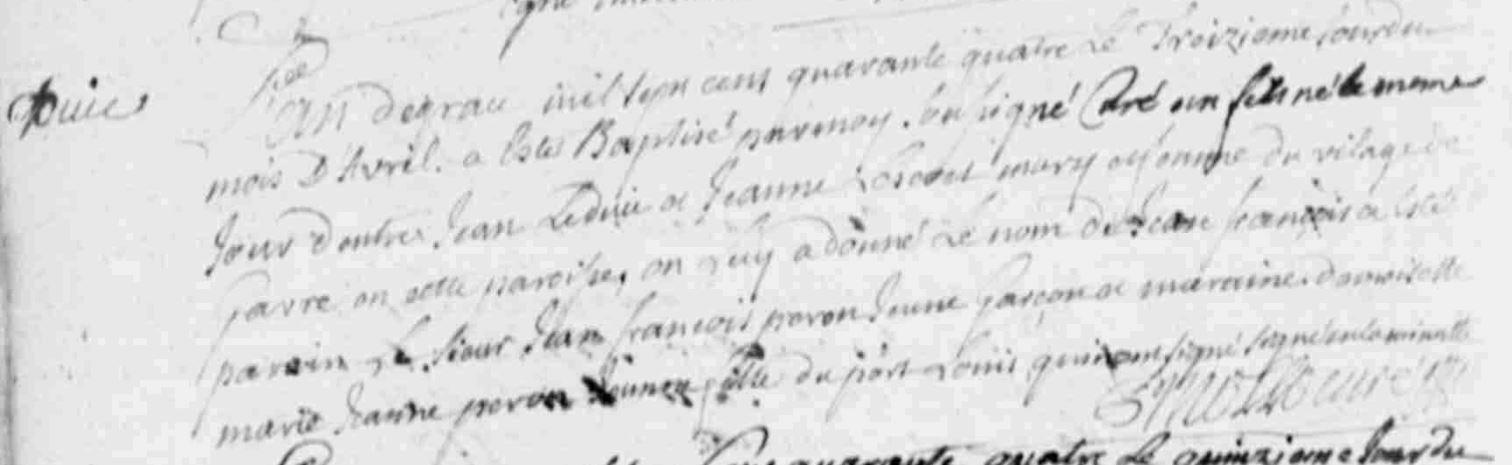 L'an degrace mil sept cent quarante quatre Le Treizieme jour du
duic
mois D'Avril. a Esté Baptisé par moy. sousigné Curé un fils né le meme
Jour d'entre Jean Leduic et Jeanne mary et femme du vilage de
gavre en cette paroisse, on Luy a donné Le nom de Jean françois a esté
parain Le Sieur Jean françois peron Jeune garçon et maraine damoiselle
marie Jeanne peron Jeune fille du port Louis qui ont signé signé en la minutte
quarante quatre Le quinzieme Jour du